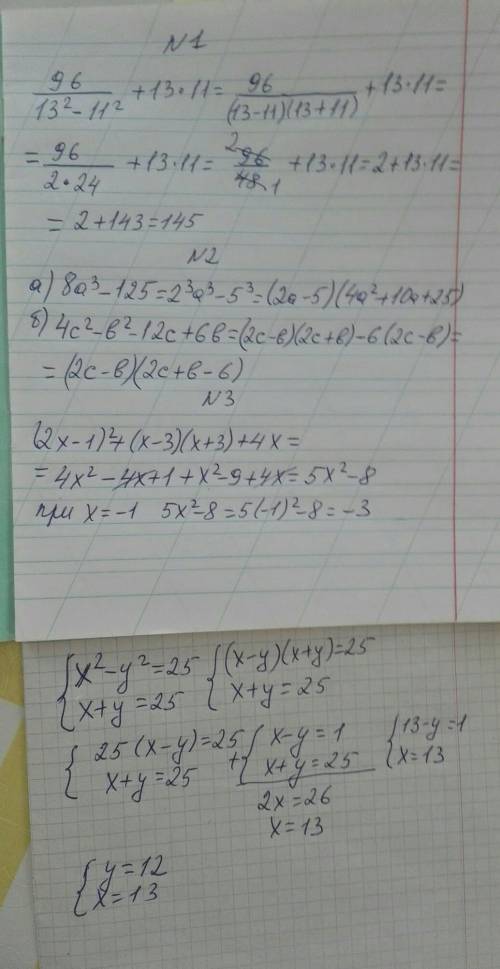 N1
96/(13² - 11²) + 13·11 = 96/((13-11)(13+11)) + 13·11 =
= 96/(2·24) + 13·11 = 96/48 2 1 + 13·11 = 2 + 13·11 =
= 2 + 143 = 145
N2
а) 8a³ - 125 = 2³a³ - 5³ = (2a-5)(4a² + 10a + 25)
б) 4c² - b² - 12c + 6b = (2c-b)(2c+b) - 6(2c-b) =
= (2c-b)(2c+b-6)
N3
(2x-1)² + (x-3)(x+3) + 4x =
= 4x² - 4x + 1 + x² - 9 + 4x = 5x² - 8
при x = -1 5x² - 8 = 5(-1)² - 8 = -3
{ x² - y² = 25 { (x-y)(x+y) = 25
x + y = 25 x + y = 25
{ 25(x-y) = 25 + { x - y = 1 { 13 - y = 1
x + y = 25 x + y = 25 x = 13
2x = 26
x = 13
{ y = 12
x = 13